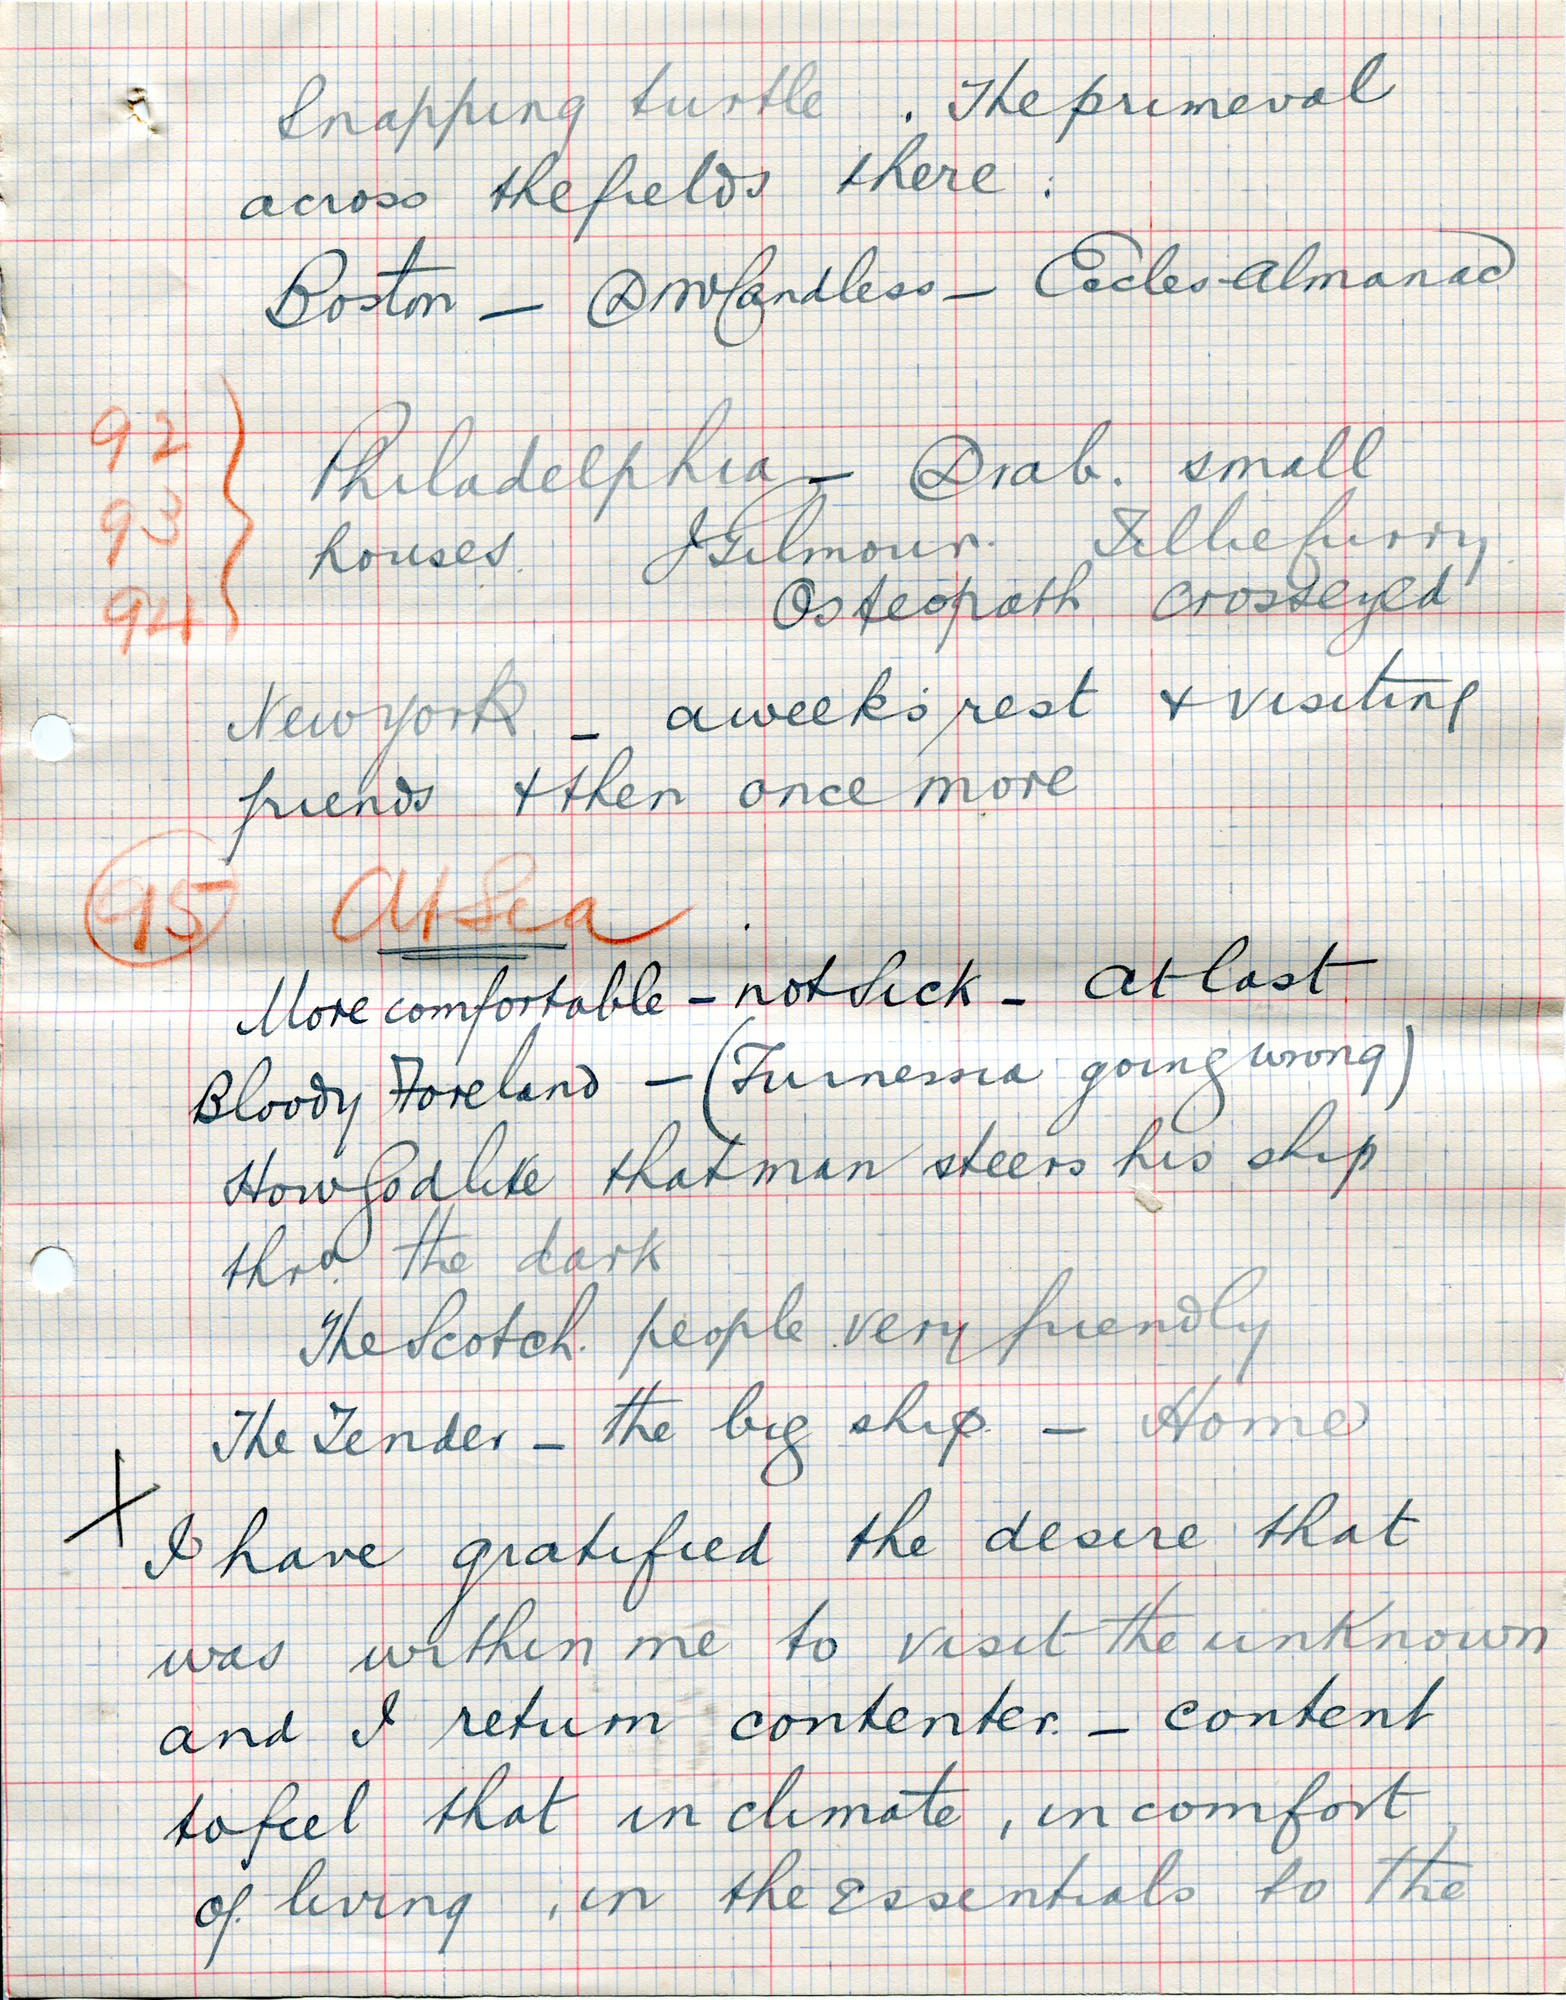 Snapping turtle . The primeval
across the fields there .
Boston – Dr McCandless – Eccles Almanac
92
93
94
Philadelphia – Drab. small
houses. J Gilmour. Tilliefurry
Osteopath crosseyed
New York – a week's rest + visiting
friends + then once more
95 At Sea
More comfortable – not sick – at last
Bloody Foreland – (Furnessia going wrong)
How Godlike that man steers his ship
thro. the dark
The Scotch. people very friendly
The Tender – the big ship. – Home
X
I have gratified the desire that
was within me to visit the unknown
and I return contenter. – content
to feel that in climate, in comfort
of living, in the Essentials to the